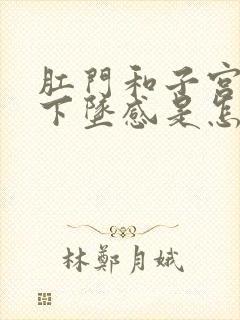 肛門和子宮
下墜感是怎
林鄭月娥